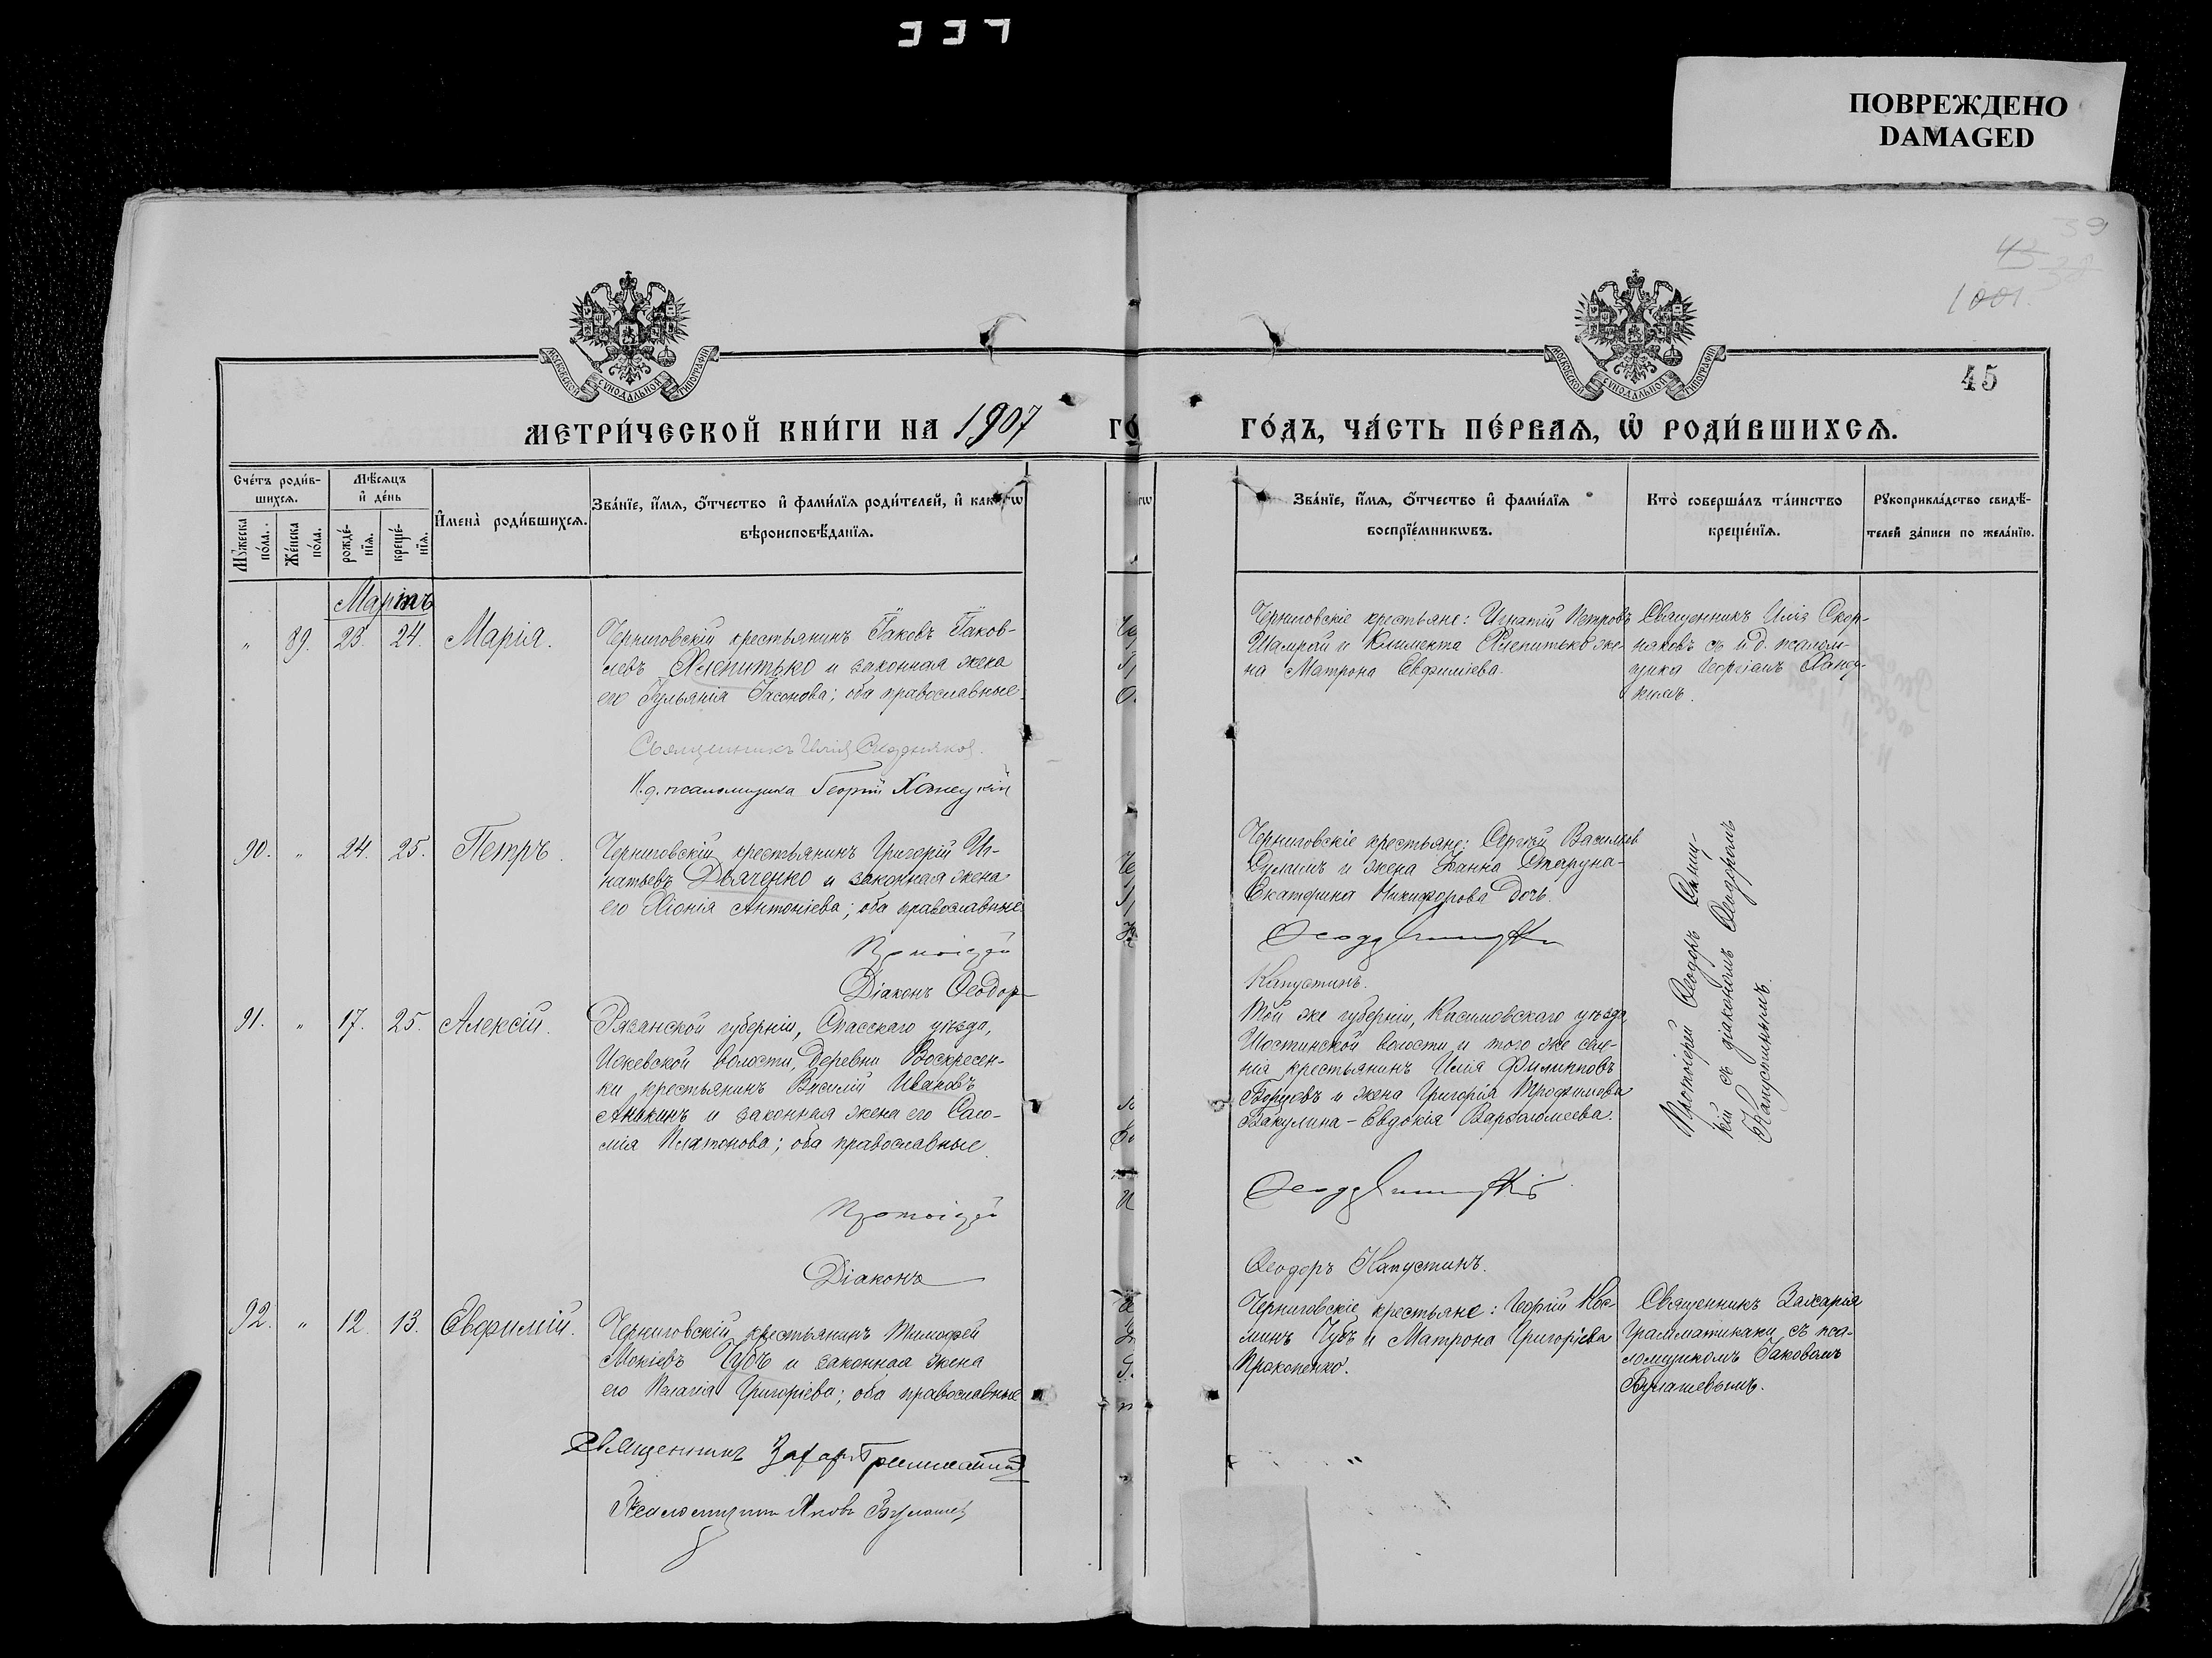 337
ПОВРЕЖДЕНО
DAMAGED
39
45
38
1001.
45
МОСКОВСКОЙ СѴНОДАЛЬНОЙ ТИПОГРАФІИ
МОСКОВСКОЙ СѴНОДАЛЬНОЙ ТИПОГРАФІИ
МЕТРИ́ЧЕСКОЙ КНИ́ГИ НА 1907
ГО́
ГО́ДЪ, ЧА́СТЬ ПЕ́РВАѦ, Ѡ҆ РОДИ́ВШИХСѦ.
Сче́тъ роди́в-
шихсѧ.
Мꙋ́жеска
по́ла.
Же́нска
по́ла.
Мѣ́сѧцъ
и҆ де́нь
рожде́-
нїѧ.
креще́-
нїѧ.
И҆мена̀ роди́вшихсѧ.
Зва́нїе, и҆́мѧ, ѻ҆́тчество и҆ фами́лїѧ роди́телей, и҆ како́гѡ
вѣроисповѣ́данїѧ.
Зва́нїе, и҆́мѧ, ѻ҆́тчество и҆ фами́лїѧ
воспрїе́мникѡвъ.
Кто̀ соверша́лъ та́инство
креще́нїѧ.
Рꙋкоприкла́дство свидѣ́-
телей за́писи по жела́нїю.
Мартъ
" 89. 23. 24. Марія.
Черниговскій крестьянинъ Іаковъ Іаков-
левъ Хлепитько и законная жена
его Іульянія Іасонова; оба православные.
Священникъ Илія Скорняковъ.
И. д. псаломщика Георгій Ханецкій
Черниговскіе крестьяне: Игнатій Петровъ
Шамрай и Климента Хлепитько же-
на Матрона Евфиміева.
Священникъ Илія Скор-
няковъ съ и. д. псалом-
щика Георгіемъ Ханец-
кимъ.
90. " 24. 25. Петръ.
Черниговскій крестьянинъ Григорій Иг-
натьевъ Дьяченко и законная жена
его Хіонія Антоніева; оба православные.
Протоіерей
Діаконъ Ѳеодоръ
Черниговскіе крестьяне: Сергѣй Васильев
Сулимъ и жена Іоанна Старуна-
Екатерина Никифорова дочь.
Капустинъ.
Кій съ діакономъ Ѳеодоромъ
Капустинымъ.
91. " 17. 25. Алексій.
Рязанской губерніи, Спасскаго уѣзда,
Ижевской волости, деревни Воскресен-
ки, крестьянинъ Василій Ивановъ
Аникинъ и законная жена его Сало-
мія Платонова; оба православные.
Протоіерей
Діаконъ
Той же губерніи, Касимовскаго уѣзда,
Шостинской волости и того же селе-
нія крестьянинъ Илія Филипповъ
Борцовъ и жена Григорія Трофимова
Бакулина - Евдокія Варфоломеева.
Ѳеодоръ Капустинъ.
92. " 12. 13. Евфимій.
Черниговскій крестьянинъ Тимофей
Мокіевъ Чубъ и законная жена
его Пелагія Григоріева; оба православные
Священникъ Захарія Грамматикати
Псаломщикъ Яковъ Булашев
Черниговскіе крестьяне: Георгій Кос-
минъ Чубъ и Матрона Григоріева
Прокопенко.
Священникъ Захарія
Грамматикати съ пса-
ломщикомъ Іаковомъ
Булашевымъ.